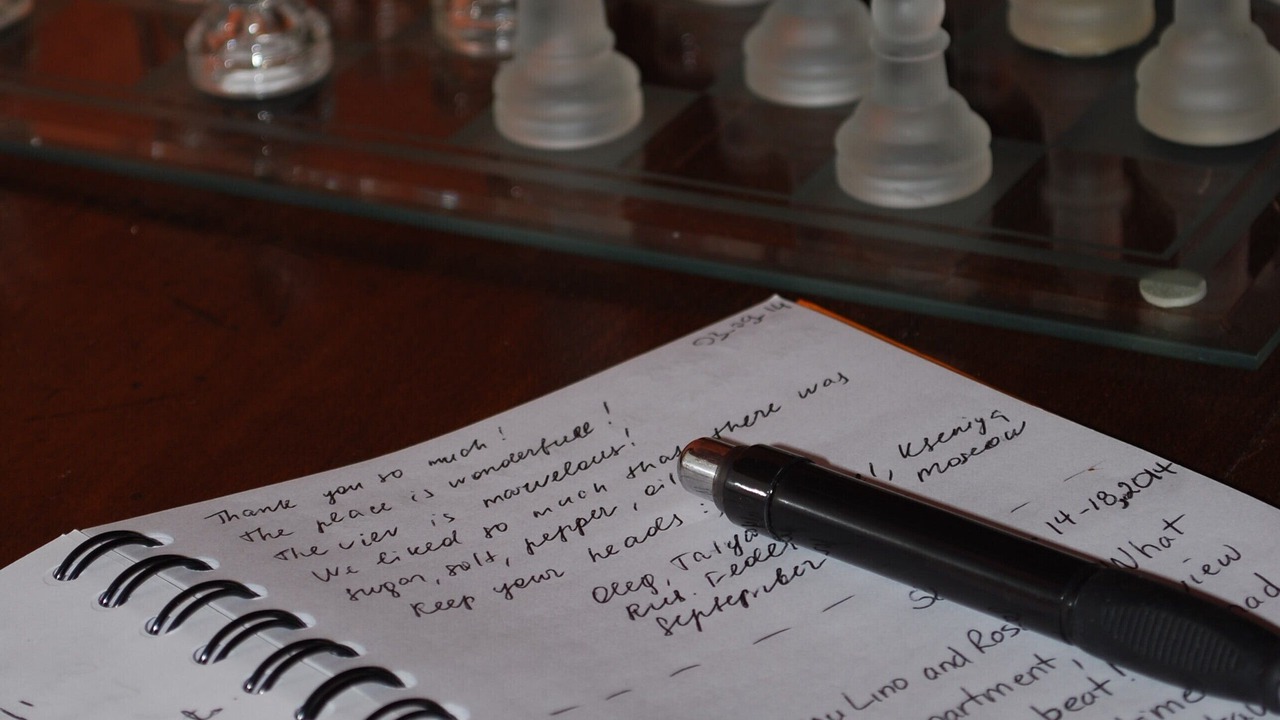 03.09.14
Thank you so much!
The place is wonderfull!
The vier is marvelous!
We liked so much that there was
sugar, salt, pepper, oil
Keep your heads :
Oleg, Tatyan Kseniya
Rus. Feder moscow
September
14-18,2014
What
view
Lino and Rosa
partment,
beat!